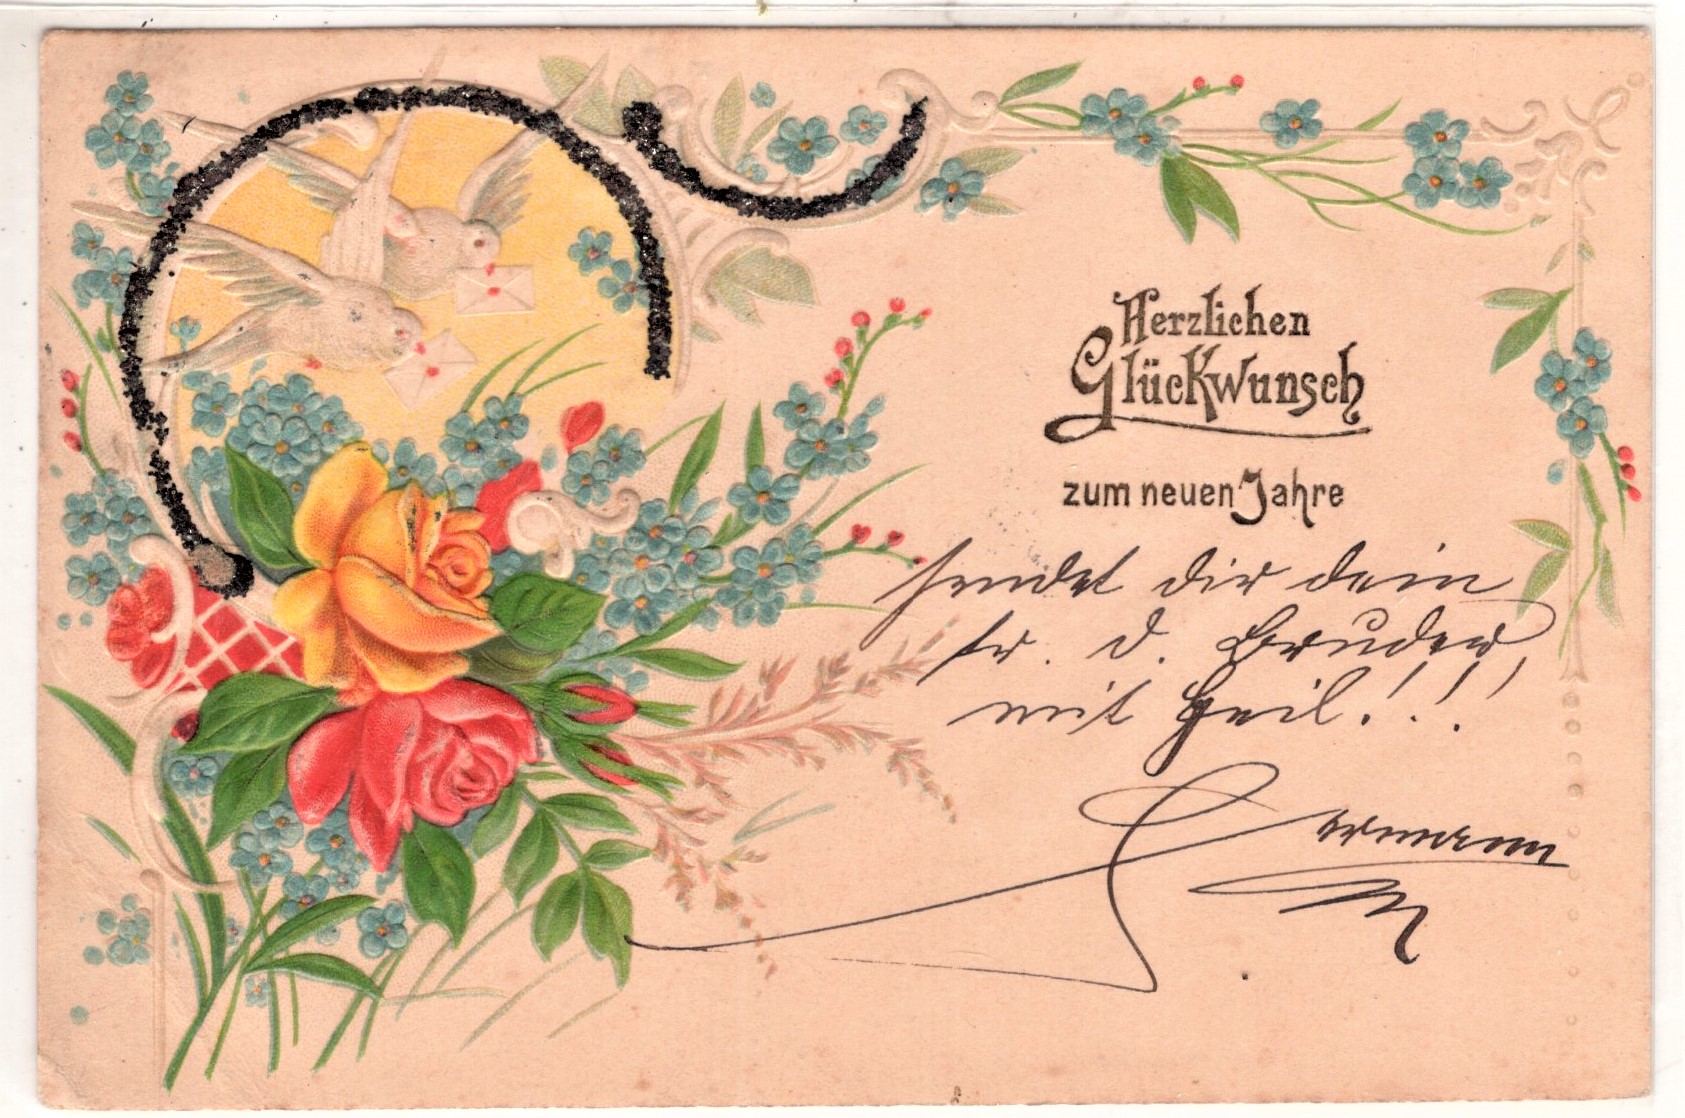 Herzlichen
Glückwunsch
zum neuen Jahre
sendet dir dein
fr. d. Bruder
mit Heil!!!
Hermann